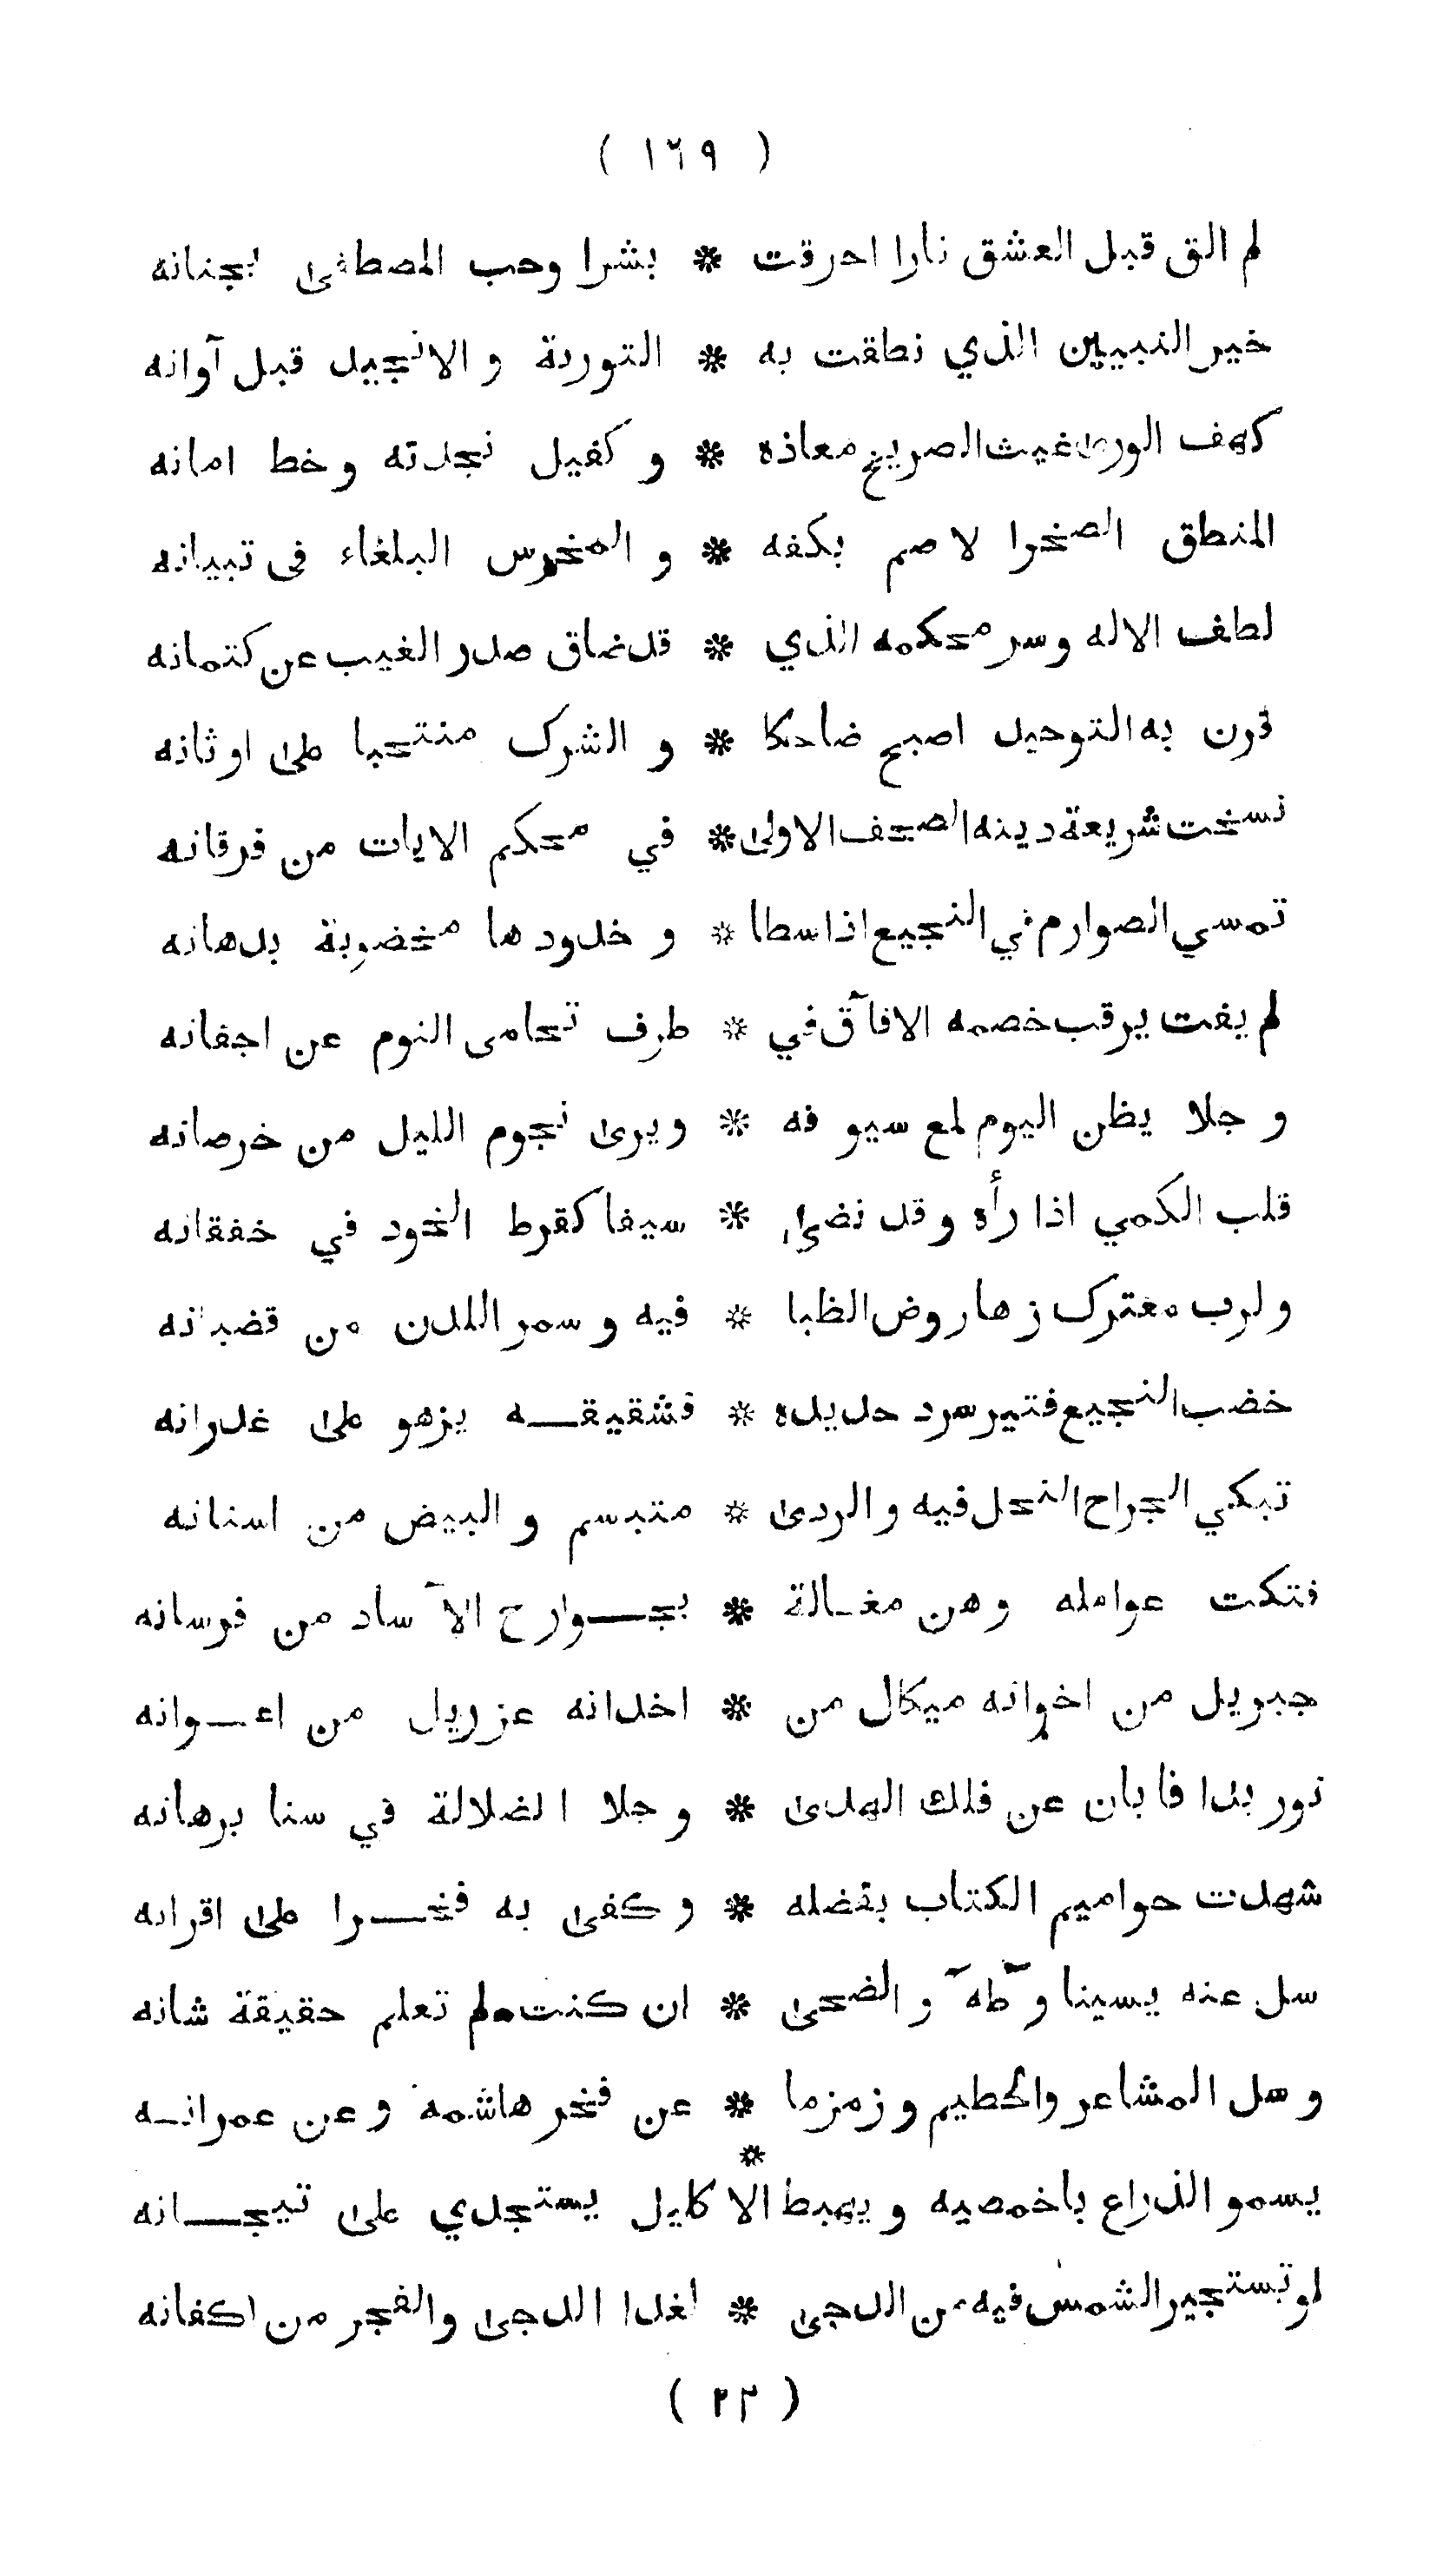 ( ١٦٩ )
لم الق قبل العشق نارا احرقت * بشرا وحب المصطفى بجنانه
خير النبيين الذي نطقت به * التورىة و الانجيل قبل آوانه
كهف الورى غيث الصريخ معاذه * و كفيل نجدته وخط امانه
المنطق الصخرا لاصم بكفه * و المخرس البلغاء فى تبيانه
لطف الاله وسر محكمه الذي * قد ضاق صدر الغيب عن كتمانه
قرن به التوحيد اصبح ضاحكا * و الشرك منتحبا على اوثانه
نسخت شريعة دينه الصحف الاولى * في محكم الايات من فرقانه
تمسي الصوارم في النجيع اذا سطا * و خدودها مخضوبة بدهانه
لم يفت يرقب خصمه الافآق في * طرف تحامى النوم عن اجفانه
و جلا يظن اليوم لمع سيو فه * ويرى نجوم الليل من خرصانه
قلب الكمي اذا رأه وقد نضى * سيفا كقرط الخود في خفقانه
ولرب معترك زها روض الظبا * فيه و سمر اللدن من قضبانه
خضب النجيع فتير سرد حديده * فشقيقـه يزهو على غدرانه
تبكي الجراح النجل فيه والردى * متبسم و البيض من اسنانه
فتكت عوامله وهن مغـالة * بجـوارح الآساد من فرسانه
جبريل من اخوانه ميكال من * اخدانه عزريل من اعـوانه
نور بدا فابان عن فلك الهدى * وجلا الضلالة في سنا برهانه
شهدت حواميم الكتاب بفضله * وكفى به فخـرا على اقرانه
سل عنه يسينا وطٓهٓ و الضحى * ان كنت لم تعلم حقيقة شانه
وسل المشاعر والحطيم وزمزما * عن فخر هاشمه وعن عمرانـه
يسمو الذراع باخمصيه ويهبط الا * كليل يستجدي على تيجـانه
لو تستجير الشمس فيه من الدجى * لغدا الدجى والفجر من اكفانه
( ٢٢ )